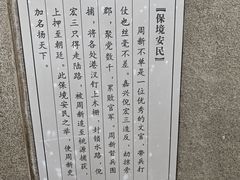 『保境安民』
周新不单是一位优秀的文官，带兵打
仗也丝毫不差。嘉兴倪宏三造反，劫掠旁
郡，聚党数千，累败官军。周新督兵围
捕，将各处港汊钉上木栅，封锁水路，倪
宏三只得走陆路，被周新追至桃源捕获，
上押至朝廷。此保境安民之举，使周新更
加名扬天下。